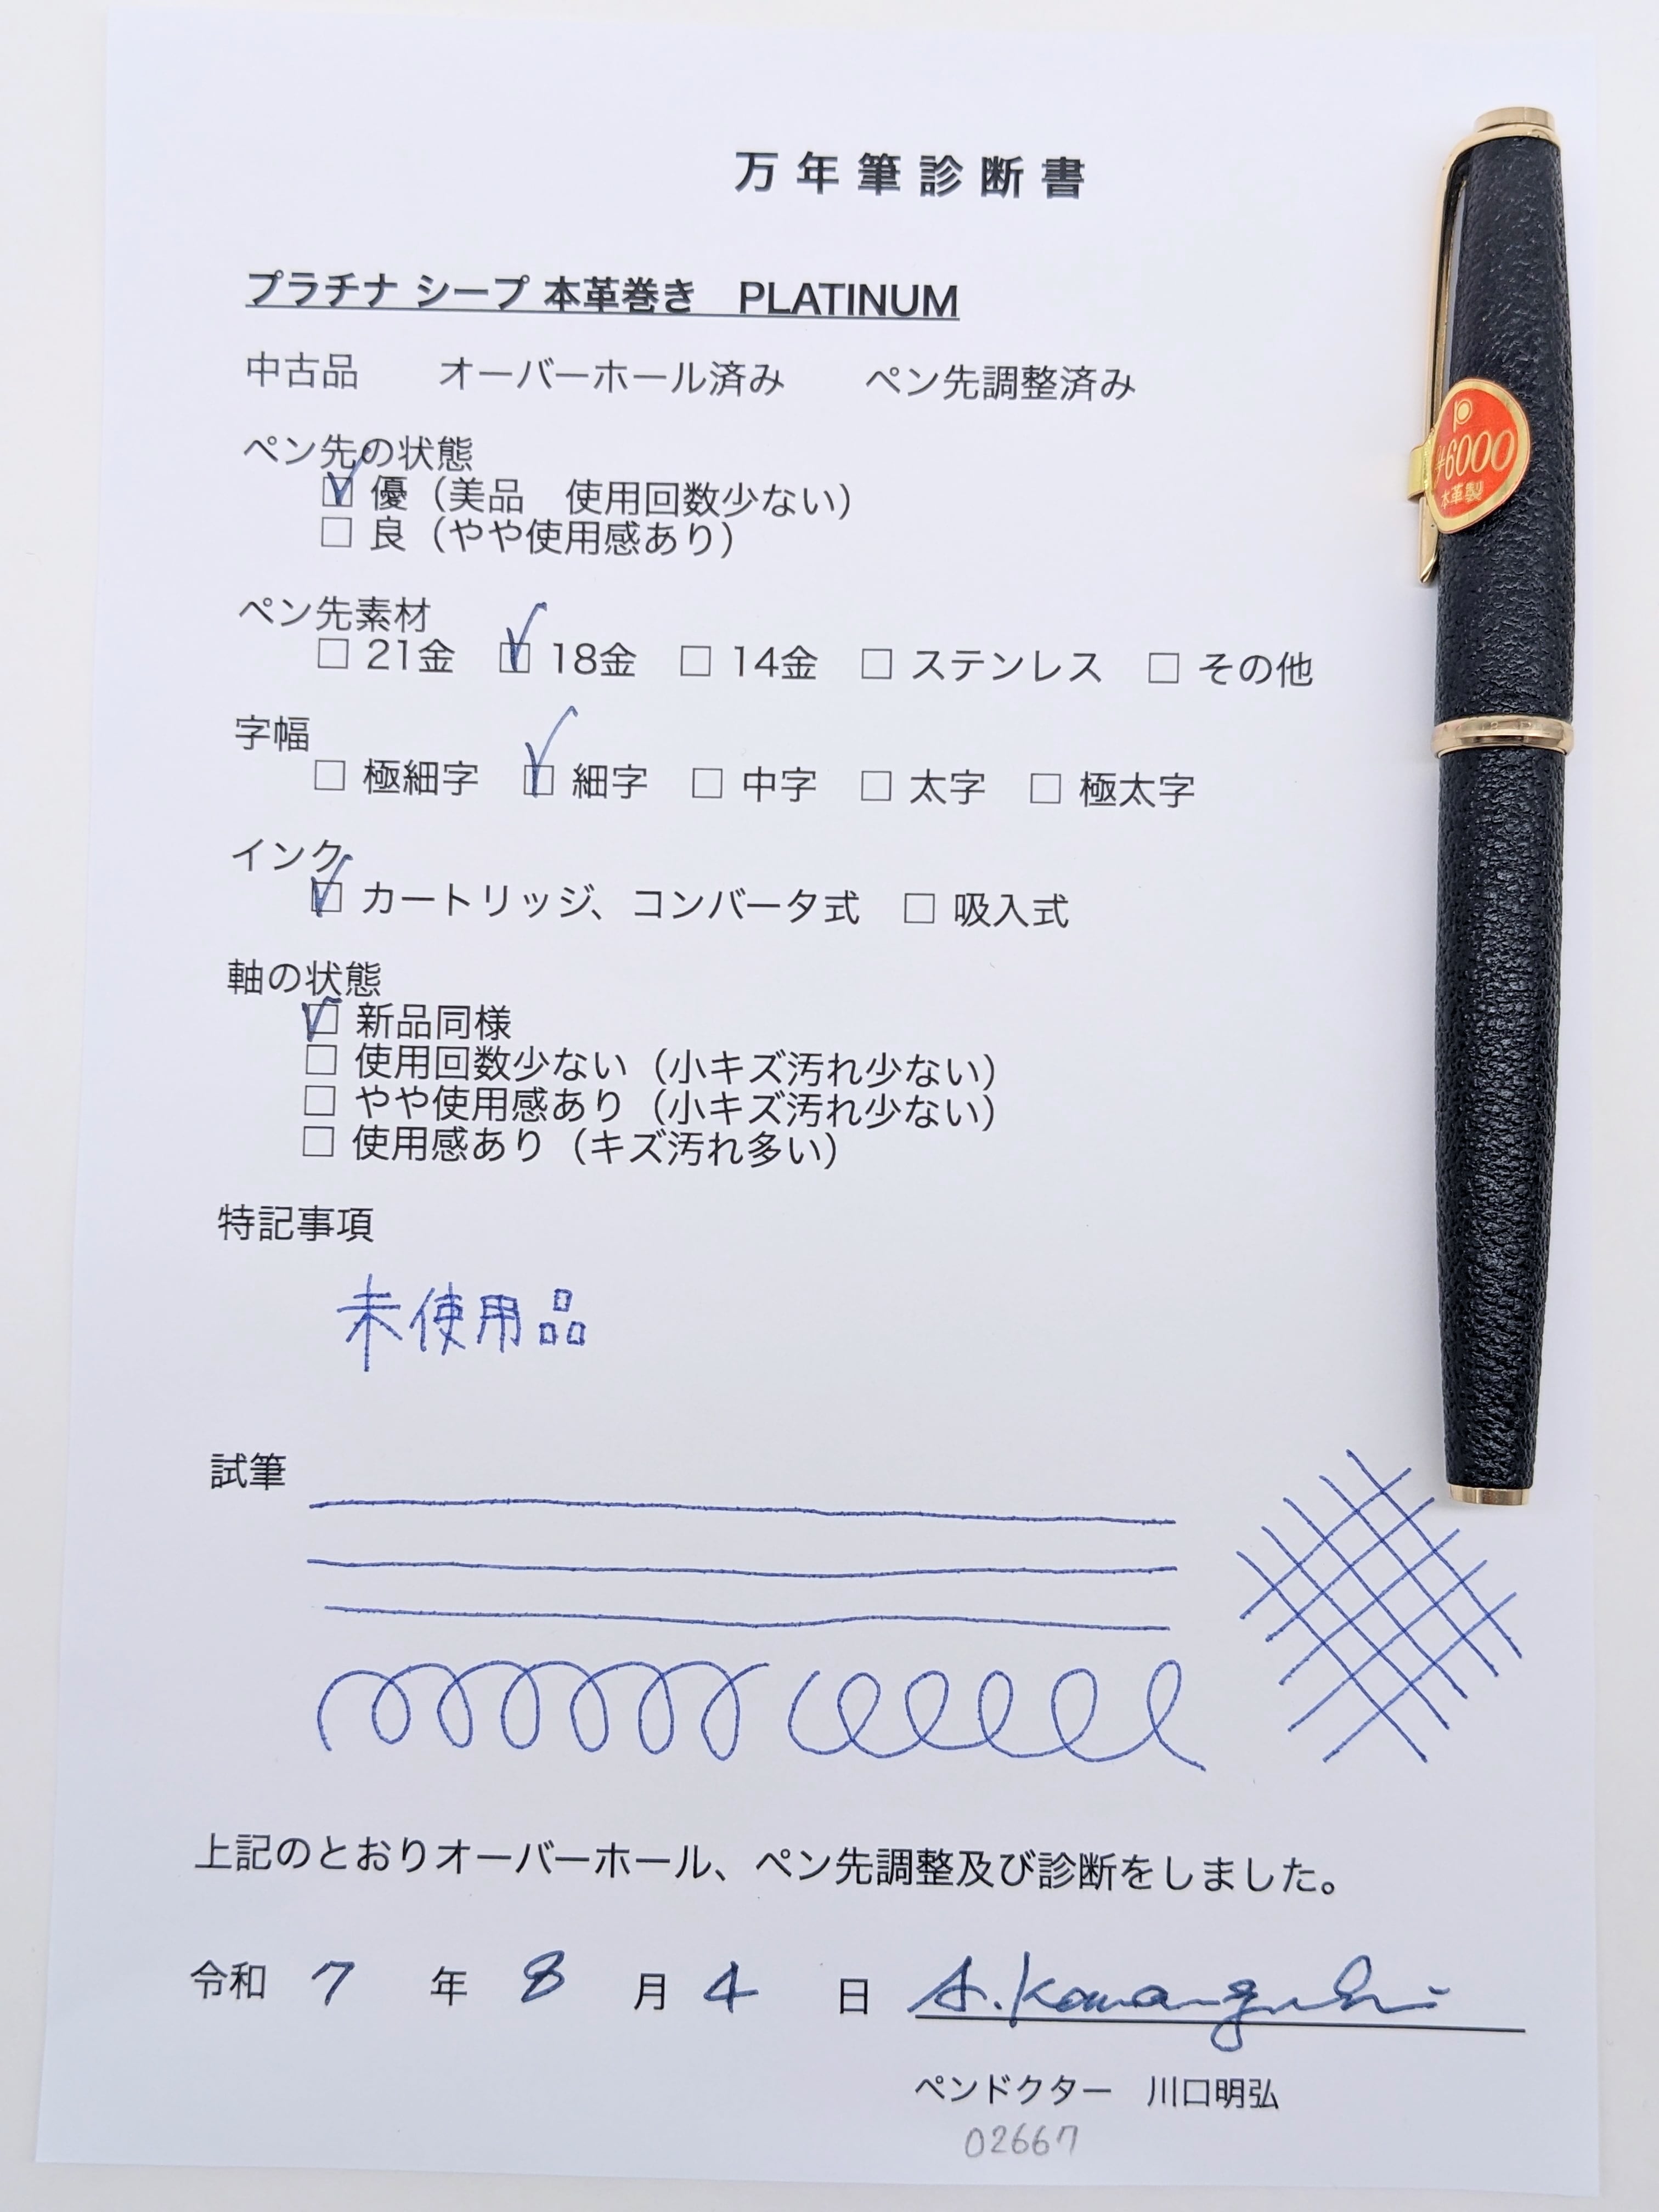 万年筆診断書
プラチナ シープ 本革巻き　PLATINUM
中古品　オーバーホール済み　ペン先調整済み
ペン先の状態
☑ 優（美品　使用回数少ない）
☐ 良（やや使用感あり）
ペン先素材
☐ 21金 ☑ 18金 ☐ 14金 ☐ ステンレス ☐ その他
字幅
☐ 極細字 ☑ 細字 ☐ 中字 ☐ 太字 ☐ 極太字
インク
☑ カートリッジ、コンバータ式 ☐ 吸入式
軸の状態
☑ 新品同様
☐ 使用回数少ない（小キズ汚れ少ない）
☐ やや使用感あり（小キズ汚れ少ない）
☐ 使用感あり（キズ汚れ多い）
特記事項
未使用品
試筆
上記のとおりオーバーホール、ペン先調整及び診断をしました。
令和 7 年 8 月 4 日 A.Kawaguchi
ペンドクター　川口明弘
02667
P
¥6000
本革製